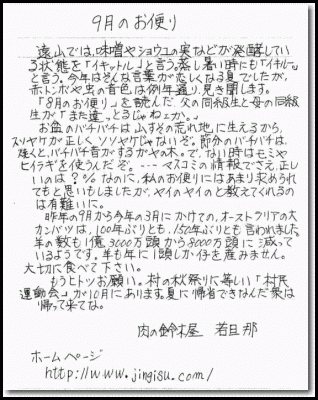 9月のお便り
遠山では、味噌やショウユの実などが発酵してい
る状態を「イキットル」と言う。蒸し暑い時にも「イキル〜」
と言う。今年はそんな言葉が恋しくなる夏でしたが、
赤トンボや虫の音色は例年通り、見き聞します。
「8月のお便り」を読んだ父の同級生と母の同級
生が「また違っとるじゃねェか。」
お盆のバチバチは山すその荒れ地に生えるから、
スソヤケが正しく、ソソヤケじゃないぞ。節分のバチバチは、
焼くと、バチバチ音がするカヤの木。で、ない時はモミや
ヒイラギを使うんだぞ。--- マスコミの情報でさえ、正し
いのは?%なのに、私のお便りにはあまり求められ
てもと思いもしましたが、ヤイのヤイのと教えてくれるの
は有難いに。
昨年の9月から今年の3月にかけての、オーストラリアの大
カンバツは、100年ぶりとも、150年ぶりとも言われました。
羊の数も1億3000万頭から8000万頭に減って
いるようです。羊も年に1頭しか仔を産みません。
大切に食べて下さい。
もうヒトツお願い。村の秋祭りに等しい「村民
運動会」が10月にあります。夏に帰省できなんだ衆は
帰って来てな。
肉の鈴木屋 若旦那
ホームページ
http://www.jingisu.com/